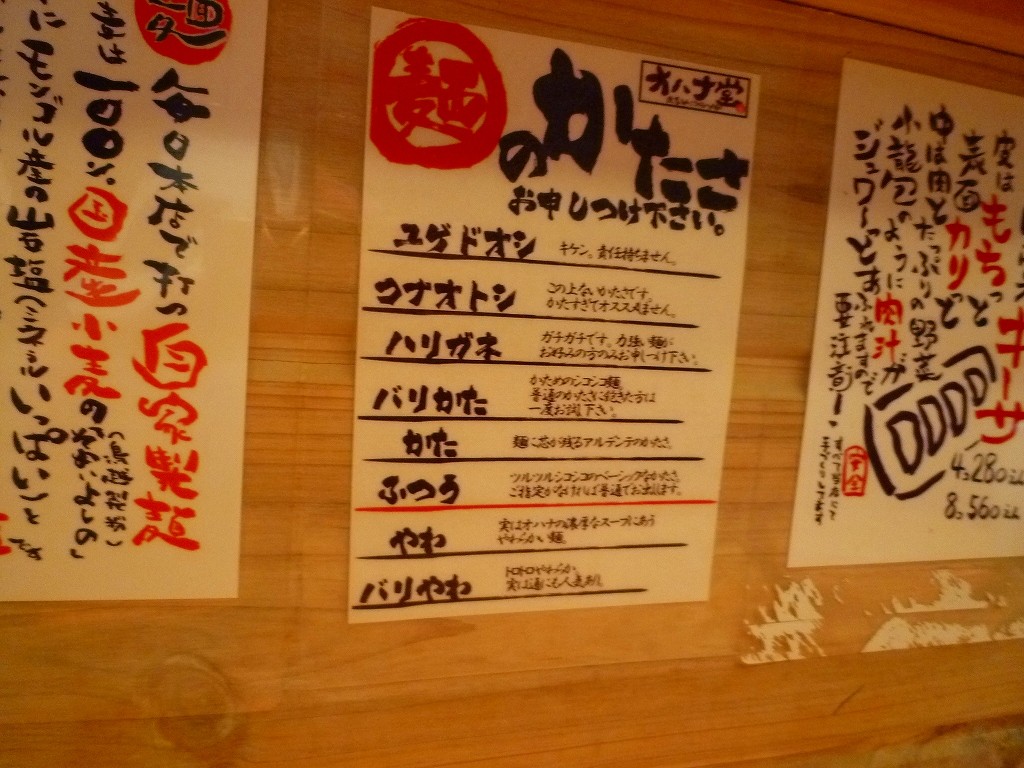 麺
毎日本店で打つ自家製麺
麦は100%国産小麦の
(鳥越製粉)
にモンゴル産の岩塩(ミネラルいっぱい)と
です
麺のかたさ
オハナ堂
お申しつけ下さい。
ユゲドオシ
キケン。責任持ちません。
コナオトシ
この上ないかたさです
かたすぎてオススメしません。
ハリガネ
ガチガチです。力強い麺が
お好みの方のみお申しつけ下さい。
バリかた
かためのシコシコ麺
普通のかたさに飽きた方は
一度お試し下さい。
かた
麺に芯が残るアルデンテのかたさ。
ふつう
ツルツルシコシコのベーシックなかたさ。
ご指定がなければ普通でお出します。
やわ
実はオハナの濃厚なスープにあう
やわらかい麺。
バリやわ
トロトロやわらか。
実は通にも人気あり。
ギョーサ
実はもちっと
表面カリッと
中は肉とたっぷりの野菜
小龍包のように肉汁が
ジュワーっとあふれますので
要注意!
安全
4コ280
8コ560